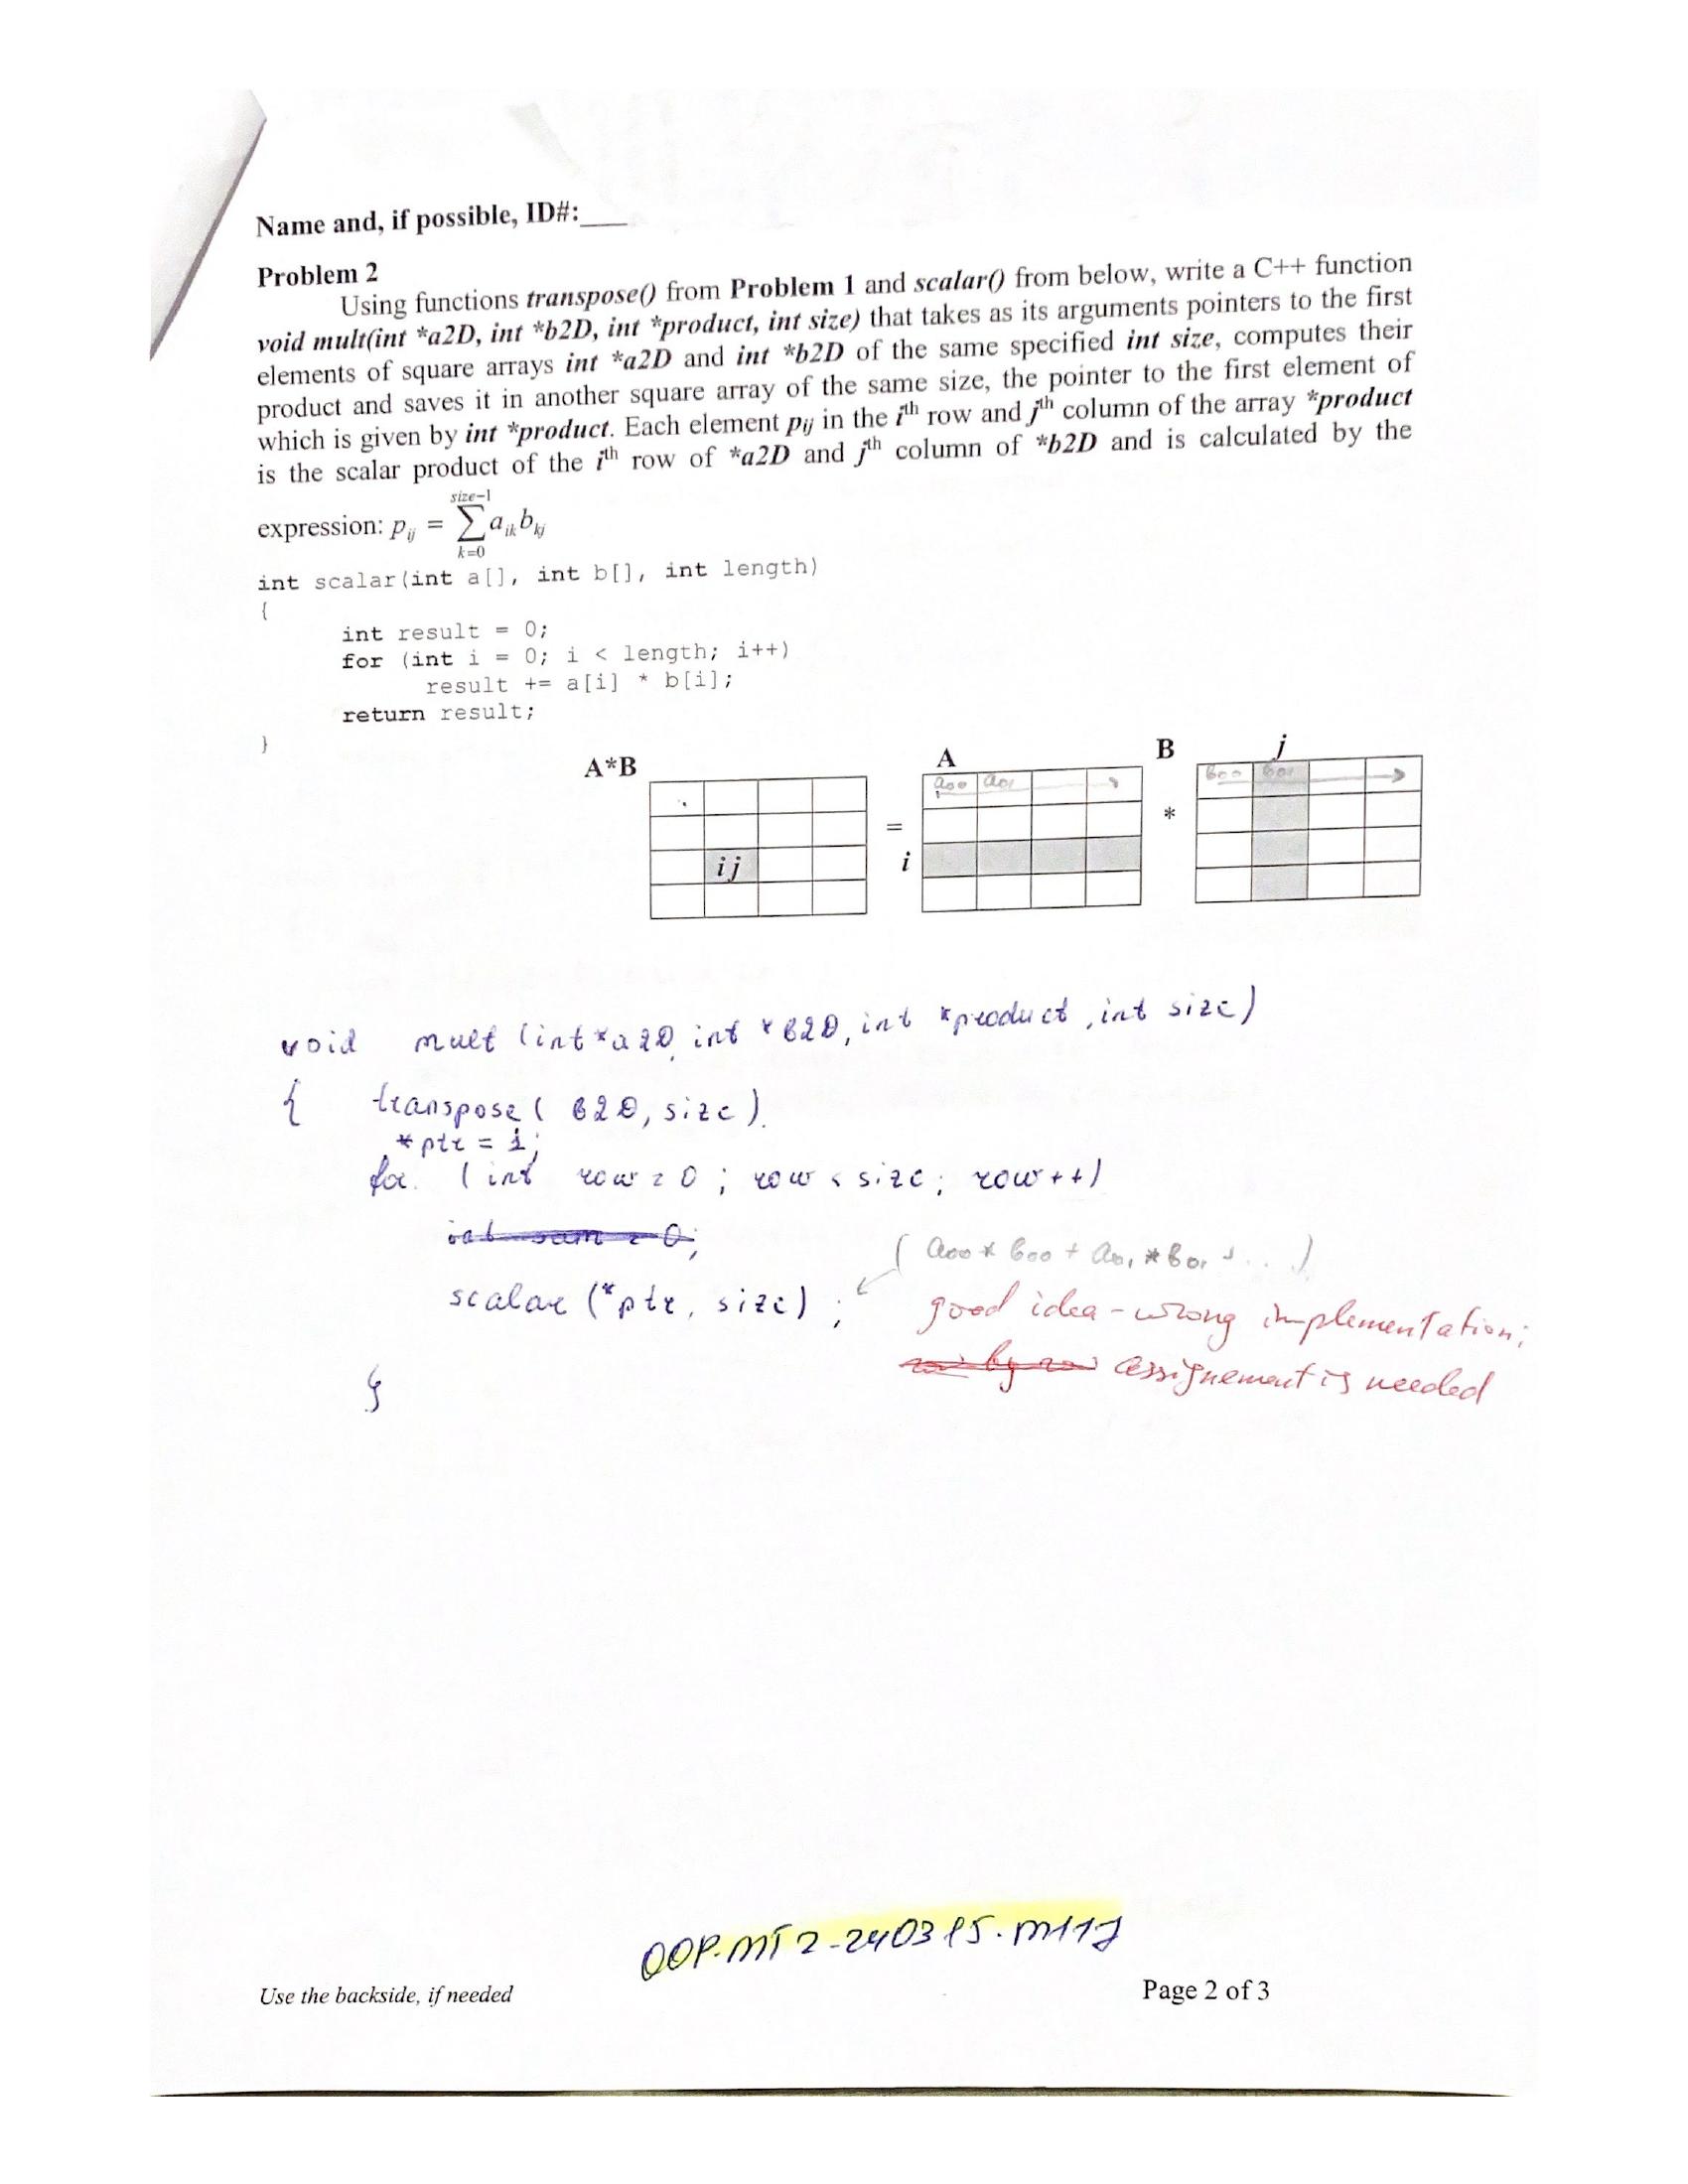 Name and, if possible, ID#:___
Problem 2
Using functions transpose() from Problem 1 and scalar() from below, write a C++ function
void mult(int *a2D, int *b2D, int *product, int size) that takes as its arguments pointers to the first
elements of square arrays int *a2D and int *b2D of the same specified int size, computes their
product and saves it in another square array of the same size, the pointer to the first element of
which is given by int *product. Each element pij in the ith row and jth column of the array *product
is the scalar product of the ith row of *a2D and jth column of *b2D and is calculated by the
size-1
expression: pij = ∑ aik bkj
k=0
int scalar(int a[], int b[], int length)
{
int result = 0;
for (int i = 0; i < length; i++)
result += a[i] * b[i];
return result;
}
A*B A B j
a00 a01 → b00 b01 →
= *
ij i
void mult (int *a2D, int *b2D, int *product, int size)
{ transpose( b2D, size ).
*ptr = 1;
for. (int row = 0 ; row < size; row++)
int sum = 0;
( a00 * b00 + a01 * b01 + ... )
scalar (*ptr, size) ;
good idea - wrong implementation;
row by row assignement is needed
}
OOP.MT2-240315.M11J
Use the backside, if needed Page 2 of 3